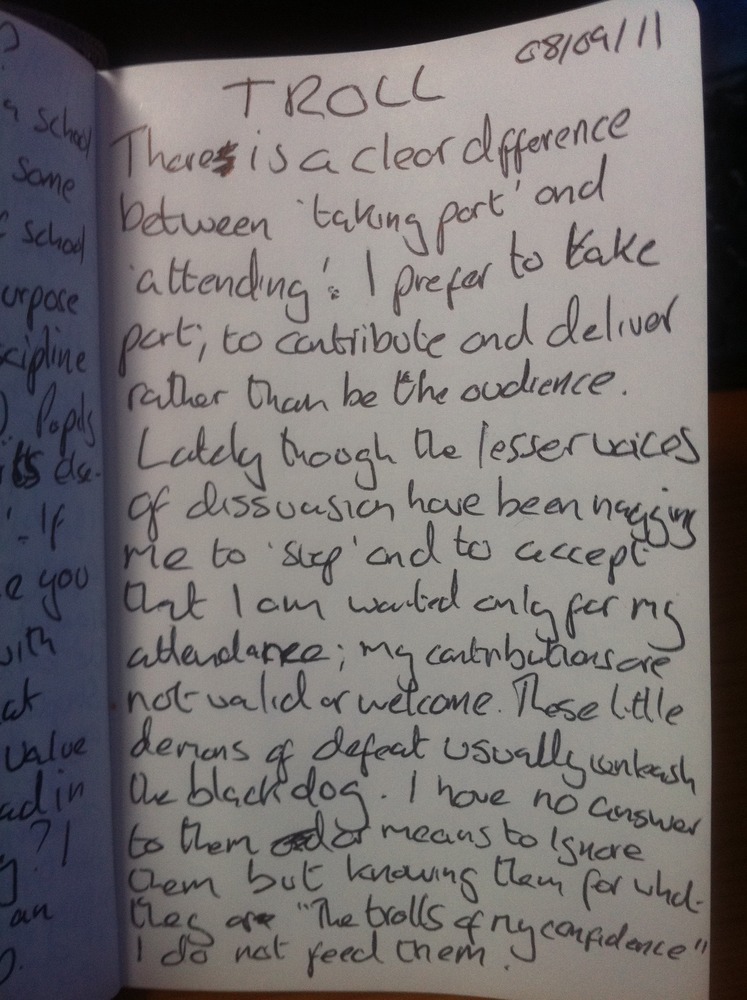 08/09/11
TROLL
There is a clear difference
between 'taking part' and
'attending'. I prefer to take
part; to contribute and deliver
rather than be the audience.
Lately though the lesser voices
of dissuasion have been nagging
me to 'stop' and to accept
that I am wanted only for my
attendance; my contributions are
not valid or welcome. These little
demons of defeat usually unleash
the black dog. I have no answer
to them or means to ignore
them but knowing them for what
they are "The trolls of my confidence"
I do not feed them.
school
some
school
urpose
cipline
Pupils
else-
'. If
e you
with
at
value
ad in
?!
an